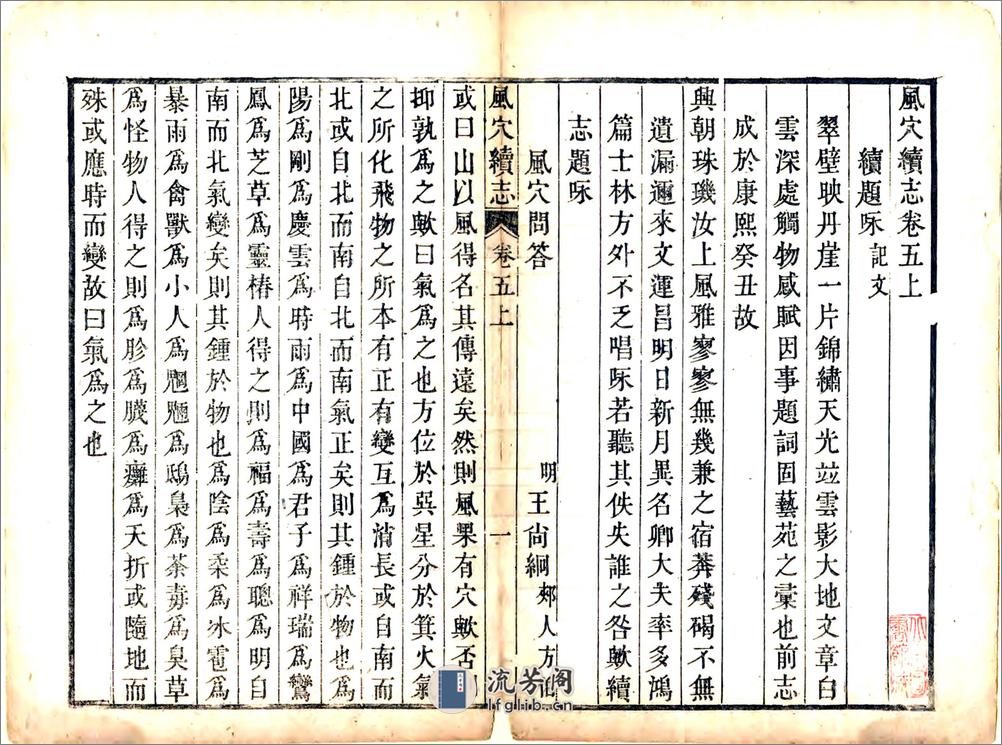 風穴續志卷五上
續題咏 記文
翠壁映丹崖一片錦繡天光竝雲影大地文章白
雲深處觸物感賦因事題詞固藝苑之彙也前志
成於康熙癸丑故
興朝珠璣汝上風雅寥寥無幾兼之宿莽殘碣不無
遺漏邇來文運昌明日新月異名卿大夫率多鴻
篇士林方外不乏唱咏若聽其佚失誰之咎歟續
志題咏
風穴問答 明 王尙絅 郟人方
風穴續志 卷五上 一
或曰山以風得名其傳遠矣然則風果有穴歟否
抑孰爲之歟曰氣爲之也方位於巽星分於箕火氣
之所化飛物之所本有正有變互爲消長或自南而
北或自北而南自北而南氣正矣則其鍾於物也爲
陽爲剛爲慶雲爲時雨爲中國爲君子爲祥瑞爲鸞
鳳爲芝草爲靈椿人得之則爲福爲壽爲聰爲明自
南而北氣變矣則其鍾於物也爲陰爲柔爲冰雹爲
暴雨爲禽獸爲小人爲魍魎爲鴟梟爲荼毒爲臭草
爲怪物人得之則爲胗爲臟爲癱爲夭折或隨地而
殊或應時而變故曰氣爲之也
流芳阁
lfglib.cn